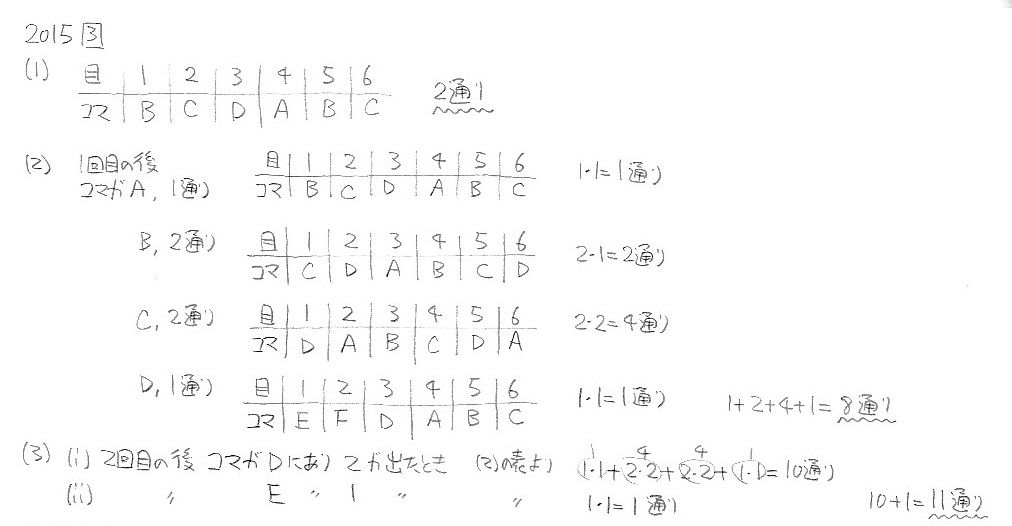 2015 3
(1) 目 1 2 3 4 5 6
コマ B C D A B C 2通り
(2) 1回目の後 目 1 2 3 4 5 6
コマがA, 1通り コマ B C D A B C 1・1=1通り
B, 2通り 目 1 2 3 4 5 6
コマ C D A B C D 2・1=2通り
C, 2通り 目 1 2 3 4 5 6
コマ D A B C D A 2・2=4通り
D, 1通り 目 1 2 3 4 5 6
コマ E F D A B C 1・1=1通り 1+2+4+1=8通り
(3) (i) 2回目の後 コマがDにあり 2が出たとき (2)の表より 1・1+2・2+2・2+1・1=10通り
1 4 4 1
(ii) 〃 E 〃 1 〃 〃 1・1=1通り 10+1=11通り